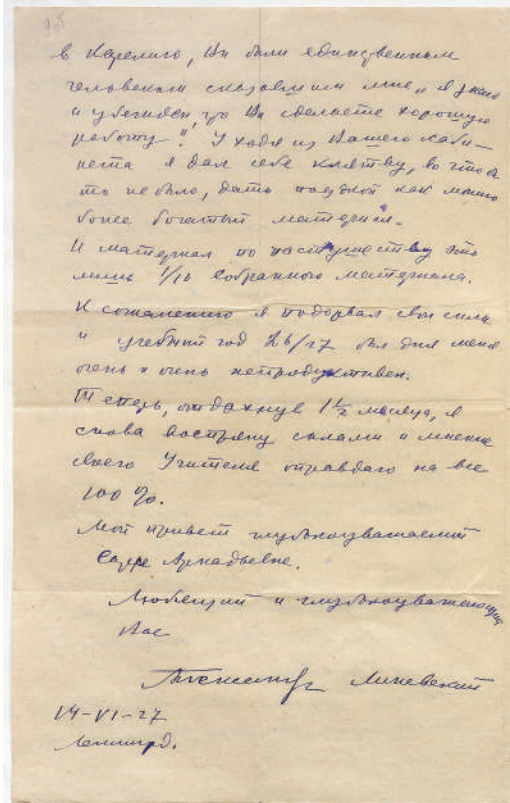 в Карелию, Вы были единственным
человеком сказавшим мне „я знаю
и убежден, что Вы сделаете хорошую
работу"! Уходя из Вашего каби-
нета я дал себе клятву, во что бы
то не было, дать поездкой как можно
более богатый материал.
И материал по пастушеству это
лишь 1/16 собранного материала.
К сожалению я подорвал свои силы
и учебный год 26/27 был для меня
очень и очень непродуктивен.
Теперь, отдохнув 1 1/2 месяца, я
снова воспряну силами и мнение
своего Учителя оправдаю на все
100 %.
Мой привет глубокоуважаемой
Аркадьевне.
Любящий и глубокоуважающий
Вас
Александр Линевский
14-VI-27
Ленингр.